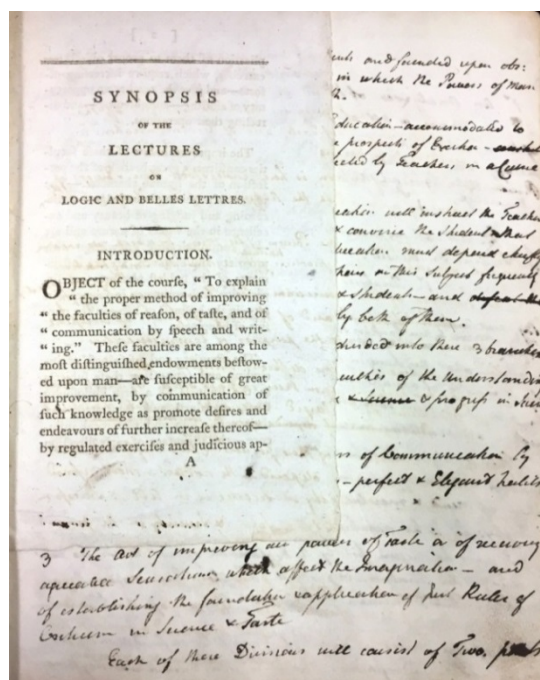 SYNOPSIS
OF THE
LECTURES
ON
LOGIC AND BELLES LETTRES.
INTRODUCTION.
OBJECT of the courſe, “ To explain
“ the proper method of improving
“ the faculties of reaſon, of taſte, and of
“ communication by ſpeech and writ-
“ ing.” Theſe faculties are among the
moſt diſtinguiſhed endowments beſtow-
ed upon man—are ſuſceptible of great
improvement, by communication of
ſuch knowledge as promote deſires and
endeavours of further increaſe thereof—
by regulated exerciſes and judicious ap-
A
and founded upon obs:
in which the Powers of Man
Education—accommodated to
prospects of
by Teachers in a Course
will instruct the Teacher
& convince the Student that
must depend chiefly
on this Subject frequently
& Students — and
by both of them.
divided into these 3 branches
of the Understanding
& Science & progress in
of Communication by
— perfect & Elegant habits
3 The Art of improving our powers of Taste & of receiving
agreeable Sensations which affect the Imagination — and
of establishing the foundation & application of just Rules of
Criticism in Science & Taste
Each of these Divisions will consist of Two parts